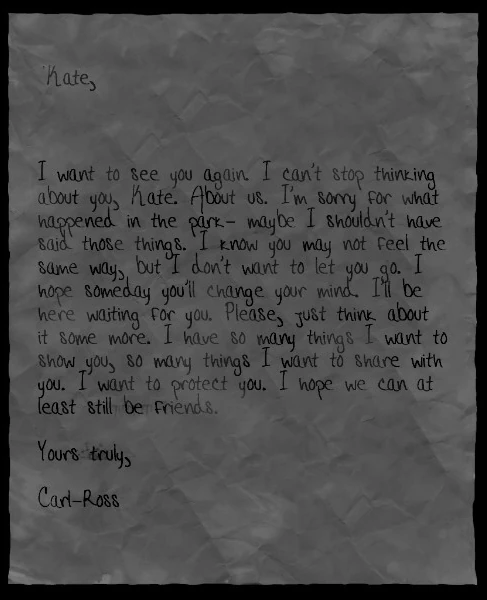 Kate,
I want to see you again. I can't stop thinking
about you, Kate. About us. I'm sorry for what
happened in the park- maybe I shouldn't have
said those things. I know you may not feel the
same way, but I don't want to let you go. I
hope someday you'll change your mind. I'll be
here waiting for you. Please, just think about
it some more. I have so many things I want to
show you, so many things I want to share with
you. I want to protect you. I hope we can at
least still be friends.
Yours truly,
Carl-Ross